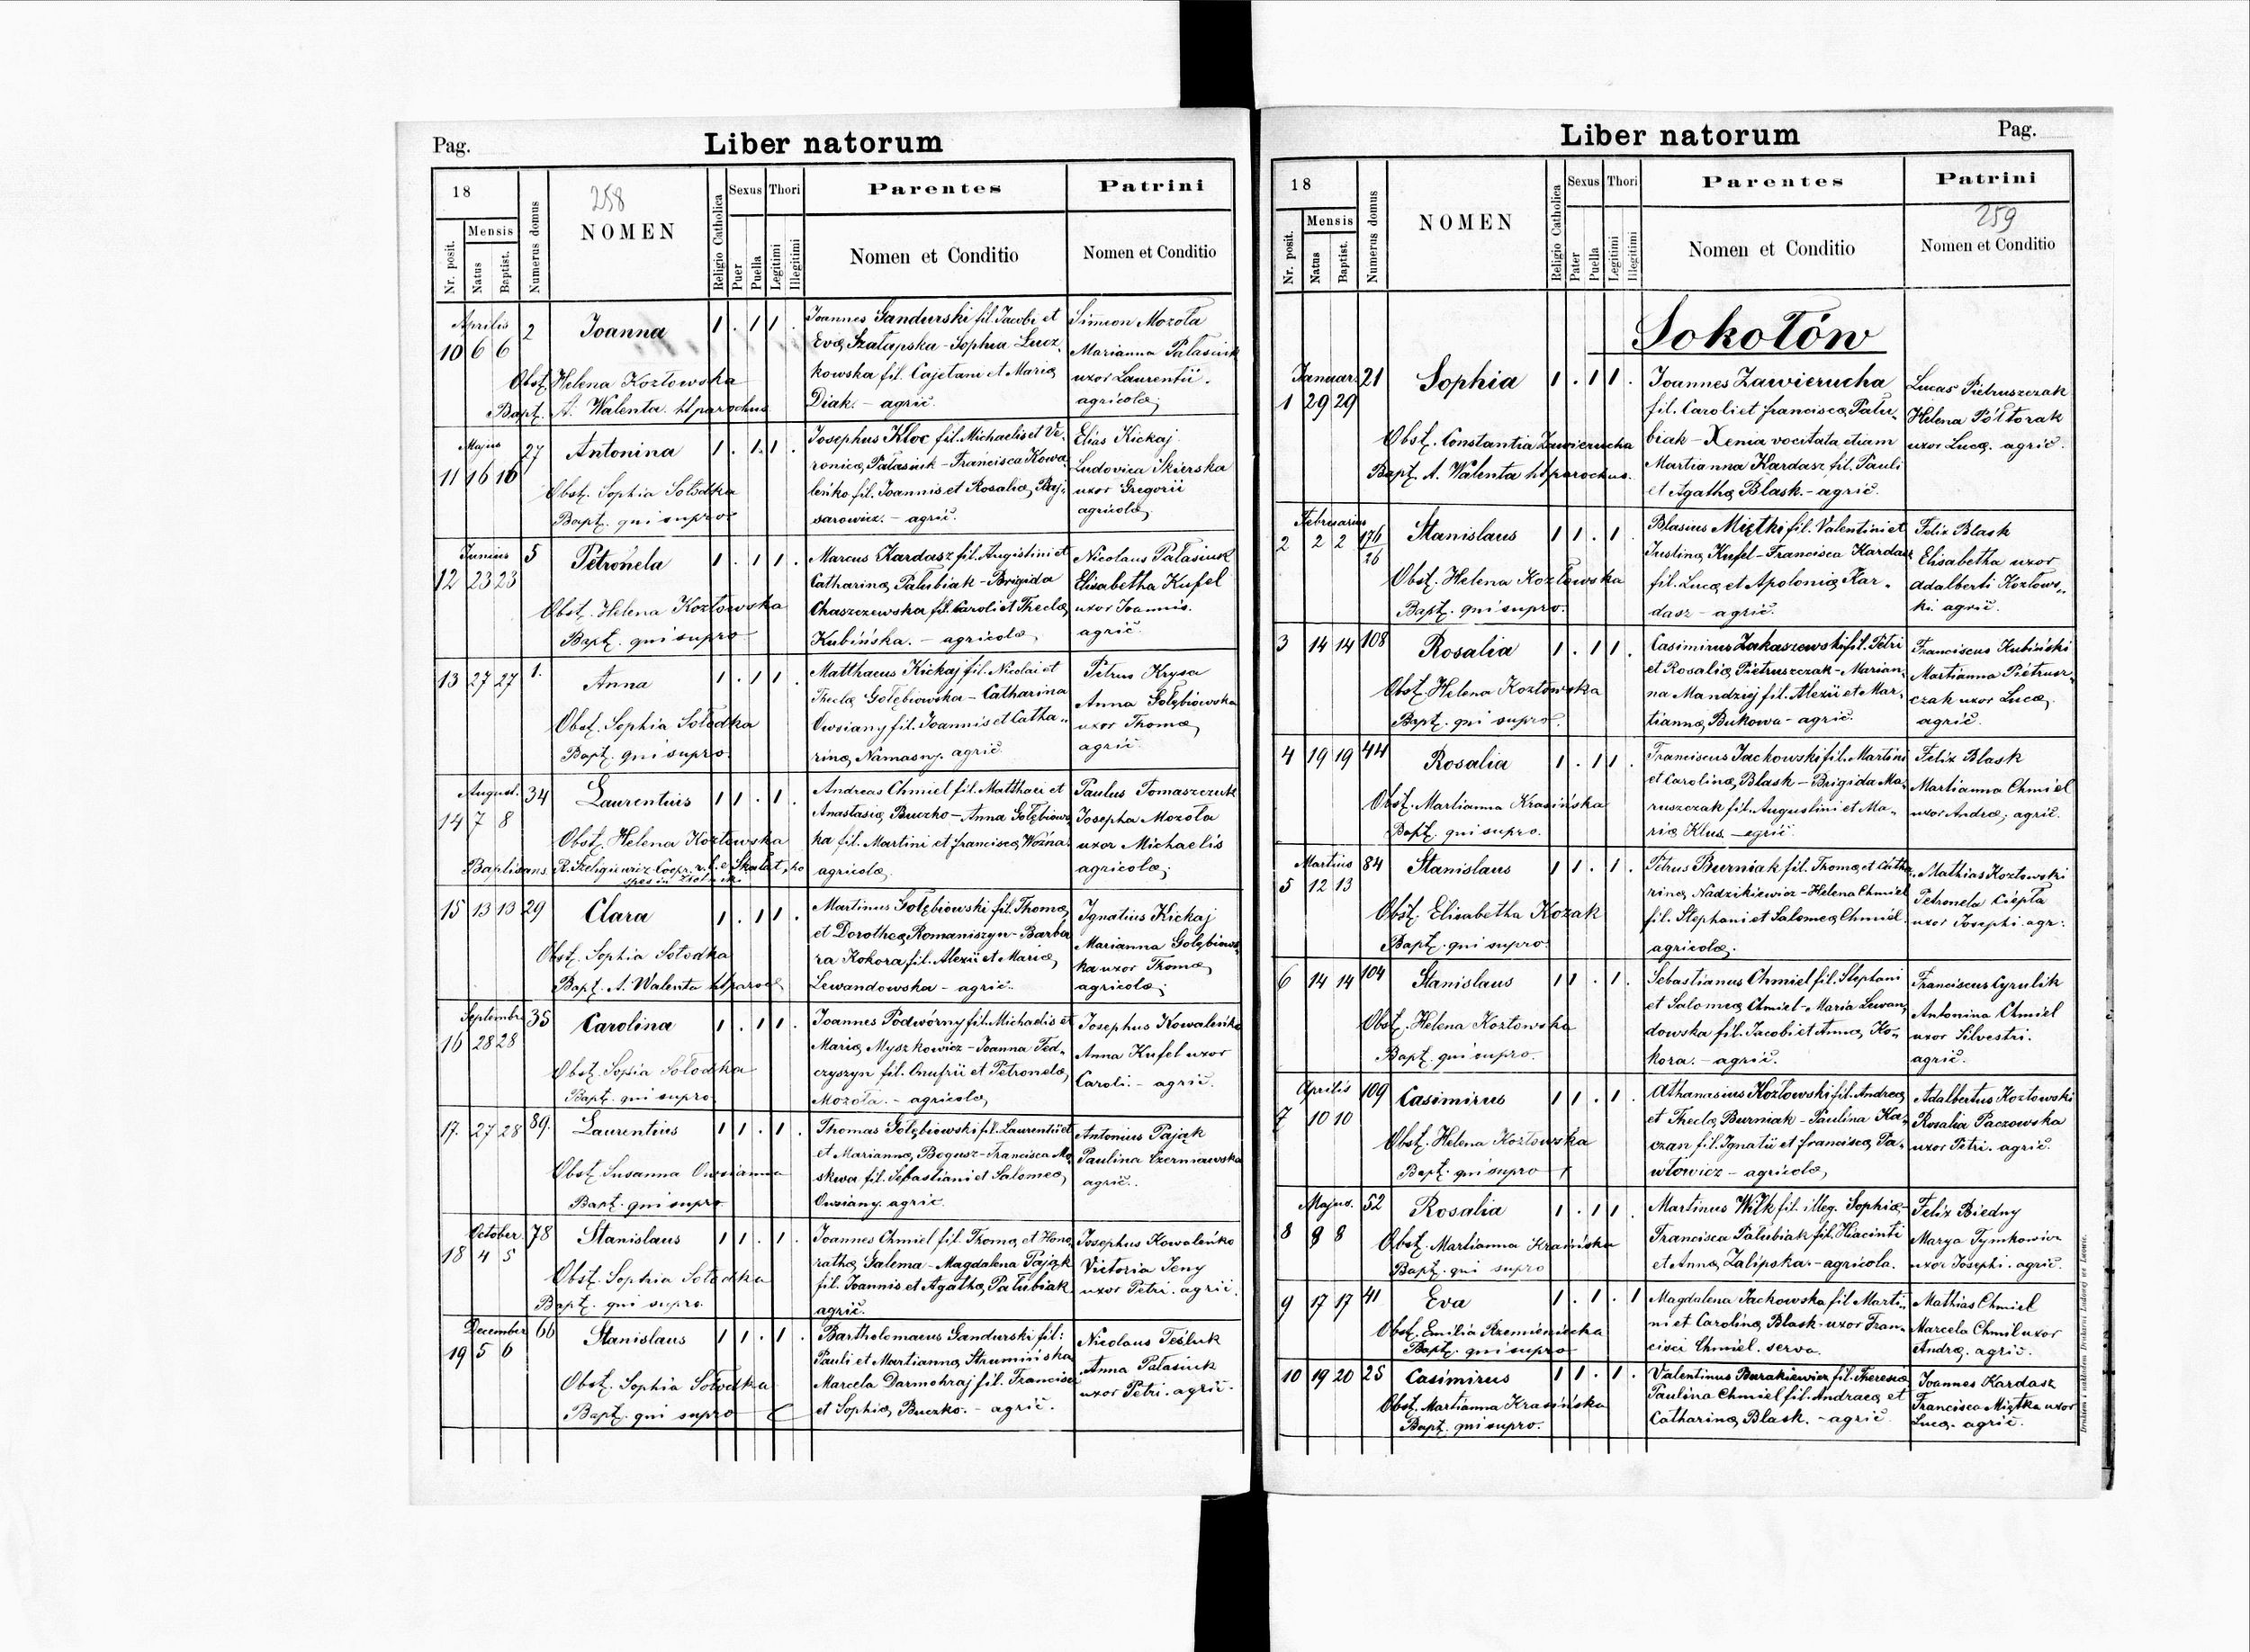 Pag. Liber natorum
18 258 Sexus Thori Parentes Patrini
Nr. posit. Mensis Natus Baptist. Numerus domus NOMEN Religio Catholica Puer Puella Legitimi Illegitimi Nomen et Conditio Nomen et Conditio
Aprilis 2 Joanna 1 . 1 1 . Joannes Gandurski fil. Jacobi et Simeon Mozoła
10 6 6 Evæ Szatapska - Sophia Lucz- Marianna Pałasiuk
Obst. Helena Kozłowska kowska fil. Cajetani et Mariæ uxor Laurentii.
Bapt. A. Walenta. ltparochus Diak. - agric. agricolæ
Majus 27 Antonina 1 . 1 . 1 Josephus Kloc fil. Michaelis et Ve- Elias Kickaj
11 16 16 ronicæ Pałasiuk - Francisca Kowa- Ludovica Skierska
Obst. Sophia Sołodka leńko fil. Joannis et Rosaliæ Baj- uxor Gregorii
Bapt. qui supra sarowicz. - agric. agricolæ
Junius 5 Petronela 1 . 1 1 . Marcus Kardasz fil. Augistini et Nicolaus Pałasiuk
12 23 23 Catharinæ Pałubiak - Brigida Elisabetha Kufel
Obst. Helena Kozłowska Chaszczewska fil. Caroli et Theclæ uxor Joannis.
Bapt. qui supra Kubińska. - agricolæ agric.
13 27 27 1. Anna 1 . 1 1 . Matthaeus Kickaj fil. Nicolai et Petrus Krysa
Theclæ Gołębiowska - Catharina Anna Gołębiowska
Obst. Sophia Sołodka Owsiany fil. Joannis et Catha- uxor Thomæ
Bapt. qui supra rinæ Namasny. agric. agric.
August. 34 Laurentius 1 1 . 1 . Andreas Chmiel fil. Matthaei et Paulus Tomaszczuk
14 7 8 Anastasiæ Buczko - Anna Gołębiows- Josepha Mozoła
Obst. Helena Kozłowska ka fil. Martini et Franciscæ Woźna. uxor Michaelis
Baptisans R. Szeligiewicz Coop. agricolæ agricolæ
15 13 13 29 Clara 1 . 1 1 . Martinus Gołębiowski fil. Thomæ Ignatius Kickaj
et Dorotheæ Romaniszyn - Barba- Marianna Gołębiows-
Obst. Sophia Sołodka ra Kokora fil. Alexii et Mariæ ka uxor Thomæ
Bapt. A. Walenta ltparoch Lewandowska - agric. agricolæ
Septembr. 35 Carolina 1 . 1 1 . Joannes Podwórny fil. Michaelis et Josephus Kowaleńko
16 28 28 Mariæ Myszkowicz - Joanna Fed- Anna Kufel uxor
Obst. Sophia Sołodka czyszyn fil. Onufrii et Petronelæ Caroli. - agric.
Bapt. qui supra Mozoła. - agricolæ
17. 27 28 89. Laurentius 1 1 . 1 . Thomas Gołębiowski fil. Laurentii et Antonius Pająk
et Mariannæ Bogusz - Francisca Mo- Paulina Czerniawska
Obst. Susanna Owsianna skwa fil. Sebastiani et Salomeæ agric.
Bapt. qui supra Owsiany. agric.
October. 78 Stanislaus 1 1 . 1 . Joannes Chmiel fil. Thomæ et Hono- Josephus Kowaleńko
18 4 5 rathæ Galema - Magdalena Pająk Victoria Jeny
Obst. Sophia Sołodka fil. Joannis et Agathæ Pałubiak uxor Petri. agric.
Bapt. qui supra. agric.
December 66 Stanislaus 1 1 . 1 . Bartholomaeus Gandurski fil: Nicolaus Teśluk
19 5 6 Pauli et Martiannæ Strumińska Anna Pałasiuk
Obst. Sophia Sołodka Marcela Darmohraj fil. Francisci uxor Petri. agric.
Bapt. qui supra et Sophiæ Buczko. - agric.
Liber natorum Pag.
18 Sexus Thori Parentes Patrini
259
Nr. posit. Mensis Natus Baptist. Numerus domus NOMEN Religio Catholica Pater Puella Legitimi Illegitimi Nomen et Conditio Nomen et Conditio
Sokołów
Januar. 21 Sophia 1 . 1 1 . Joannes Zawierucha Lucas Pietruszczak
1 29 29 fil. Caroli et Franciscæ Pału- Helena Półtorak
Obst. Constantia Zawierucha biak - Xenia vocitata etiam uxor Lucæ. agric.
Bapt. A. Walenta ltparochus. Martianna Kardasz fil. Pauli
et Agathæ Blask. - agric.
Februarius 176/26 Stanislaus 1 1 . 1 . Blasius Miętki fil. Valentini et Felix Blask
2 2 2 Justinæ Kufel - Francisca Kardasz Elisabetha uxor
Obst. Helena Kozłowska fil. Lucæ et Apoloniæ Kar- Adalberti Kozłows-
Bapt. qui supra. dasz - agric. ki. agric.
3 14 14 108 Rosalia 1 . 1 1 . Casimirus Zakaszewski fil. Petri Franciscus Kubiński
et Rosaliæ Pietruszczak - Marian- Martianna Pietrusz-
Obst. Helena Kozłowska na Mandziej fil. Alexii et Mar- czak uxor Lucæ
Bapt. qui supra. tiannæ Bukowa - agric. agric.
4 19 19 44 Rosalia 1 . 1 1 . Franciscus Jackowski fil. Martini Felix Blask
et Carolinæ Blask - Brigida Ma- Martianna Chmiel
Obst. Martianna Krasińska ruszczak fil. Augustini et Ma- uxor Andreæ, agric.
Bapt. qui supra. riæ Klus - agric.
Martius 84 Stanislaus 1 1 . 1 . Petrus Burniak fil. Thomæ et Catha- Mathias Kozłowski
5 12 13 rinæ Nadzikiewicz - Helena Chmiel Petronela Ciepła
Obst. Elisabetha Kozak fil. Stephani et Salomeæ Chmiel. uxor Josephi. agr:
Bapt. qui supra agricolæ.
6 14 14 104 Stanislaus 1 1 . 1 . Sebastianus Chmiel fil. Stephani Franciscus Cyrulik
et Salomeæ Chmiel - Maria Lewan- Antonina Chmiel
Obst. Helena Kozłowska dowska fil. Jacobi et Annæ Ko- uxor Silvestri.
Bapt. qui supra. kora. - agric. agric.
Aprilis 109 Casimirus 1 1 . 1 . Athanasius Kozłowski fil. Andreæ Adalbertus Kozłowski
7 10 10 et Theclæ Burniak - Paulina Ka- Rosalia Paczowska
Obst. Helena Kozłowska czan fil. Ignatii et Franciscæ Pa- uxor Petri. agric.
Bapt. qui supra † włowicz - agricolæ
Majus. 52 Rosalia 1 . 1 1 . Martinus Wilk fil. illeg. Sophiæ Felix Biedny
8 8 8 Francisca Pałubiak fil. Hiacinti Marya Tymkowicz
Obst. Martianna Krasińska et Annæ Zalipska. - agricola. uxor Josephi. agric.
Bapt. qui supra
9 17 17 41 Eva 1 . 1 . 1 Magdalena Jackowska fil Marti- Mathias Chmiel
Obst. Emilia Rzemieniecka ni et Carolinæ Blask. uxor Fran- Marcela Chmil uxor
Bapt. qui supra cisci Chmiel. serva. Andreæ. agric.
10 19 20 25 Casimirus 1 1 . 1 . Valentinus Burakiewicz fil. Theresiæ Joannes Kardasz
Obst. Martianna Krasińska Paulina Chmiel fil. Andreæ et Francisca Miętka uxor
Bapt. qui supra. Catharinæ Blask. - agric. Lucæ. agric.